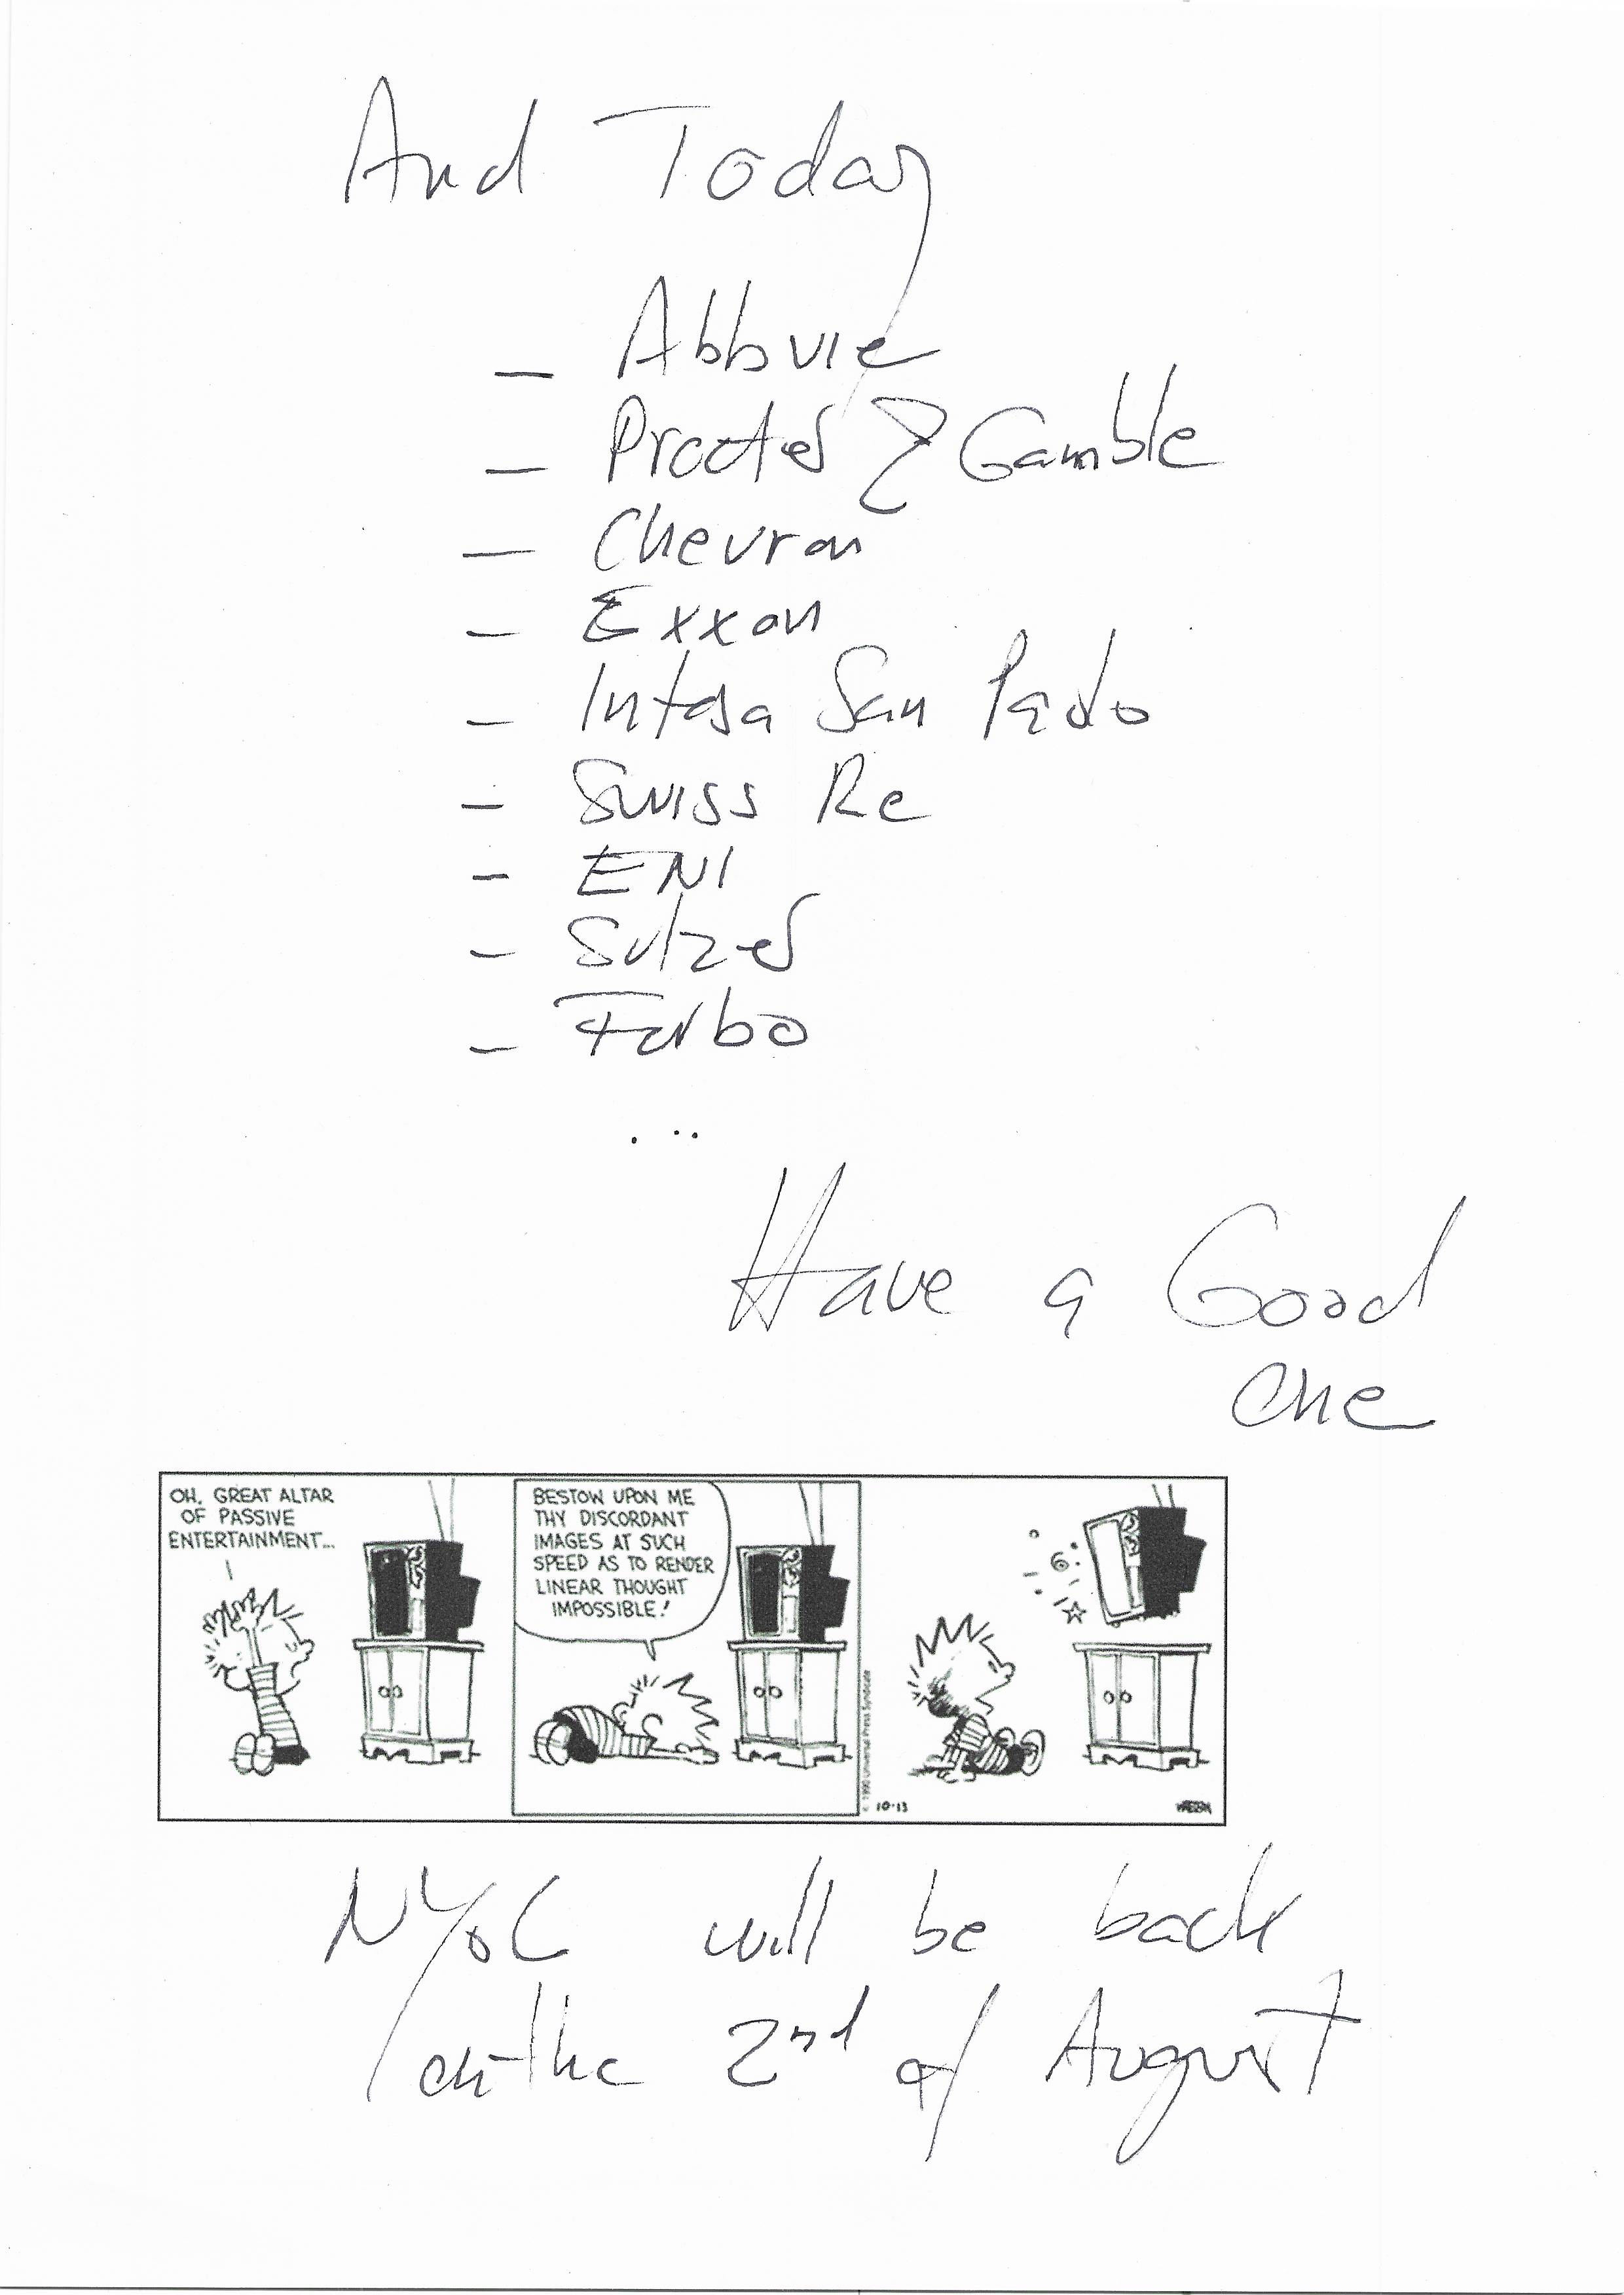 And Today
– Abbvie
– Procter & Gamble
– Chevron
– Exxon
– Intesa San Paolo
– Swiss Re
– ENI
– Sulzer
– Forbo
...
Have a Good
one
OH, GREAT ALTAR
OF PASSIVE
ENTERTAINMENT...
BESTOW UPON ME
THY DISCORDANT
IMAGES AT SUCH
SPEED AS TO RENDER
LINEAR THOUGHT
IMPOSSIBLE!
© 1990 Universal Press Syndicate
10-13
WATTERSON
will be back
on the 2nd of August